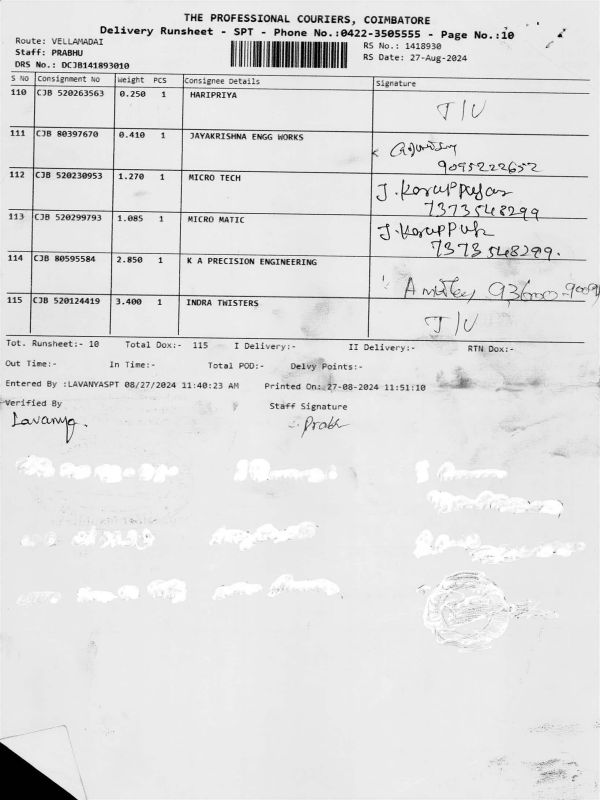 THE PROFESSIONAL COURIERS, COIMBATORE
Delivery Runsheet - SPT - Phone No.:0422-3505555 - Page No.:10
Route: VELLAMADAI
RS No.: 1418930
Staff: PRABHU
RS Date: 27-Aug-2024
DRS No.: DCJB141893010
S No Consignment No Weight PCS Consignee Details Signature
110 CJB 520263563 0.250 1 HARIPRIYA T/U
111 CJB 80397670 0.410 1 JAYAKRISHNA ENGG WORKS
9095222652
112 CJB 520230953 1.270 1 MICRO TECH J. Karuppujas
7373548299
113 CJB 520299793 1.085 1 MICRO MATIC J. Karuppuh
7373548299.
114 CJB 80595584 2.850 1 K A PRECISION ENGINEERING
115 CJB 520124419 3.400 1 INDRA TWISTERS T/U
Tot. Runsheet:- 10 Total Dox:- 115 I Delivery:- II Delivery:- RTN Dox:-
Out Time:- In Time:- Total POD:- Delvy Points:-
Entered By :LAVANYASPT 08/27/2024 11:40:23 AM Printed On: 27-08-2024 11:51:10
Verified By Staff Signature
Lavanya. Prabh